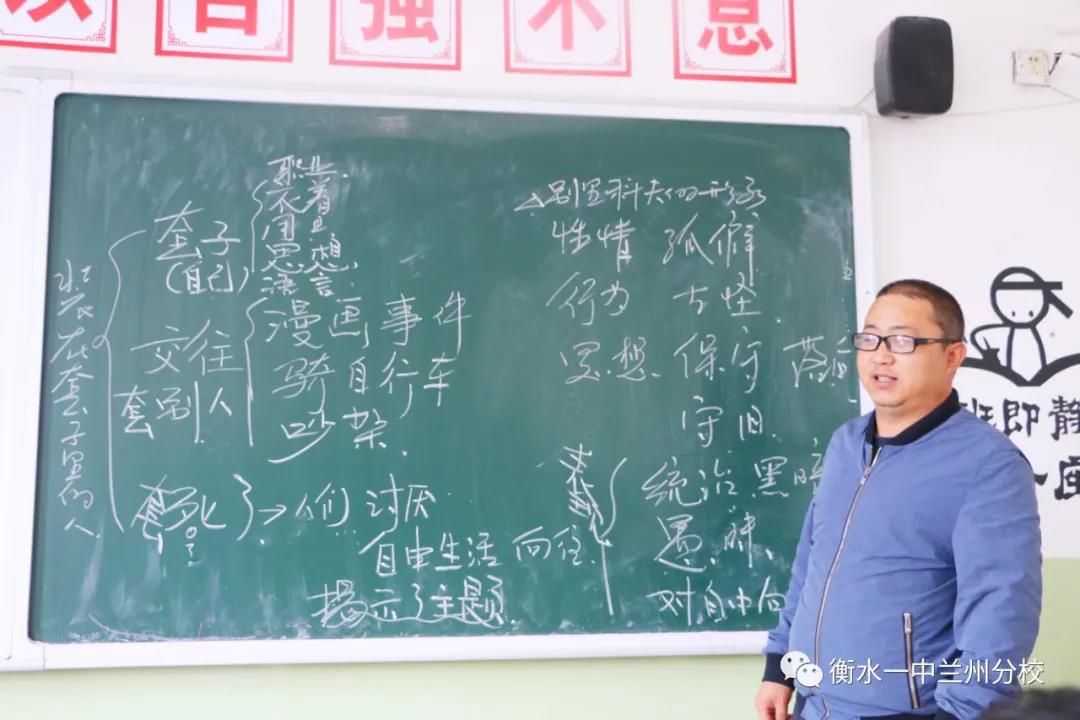 自强不息
装在套子里的人
套子
(自己)
职业
衣着
用具
思想
语言
交往
套别人
漫画事件
骑自行车
吵架
套死
→人们讨厌
自由生活 向往
揭示了主题
△别里科夫的形象
性情 孤僻
行为 古怪
思想 保守
守旧
统治黑暗
对自由向
班即静
衡水一中兰州分校